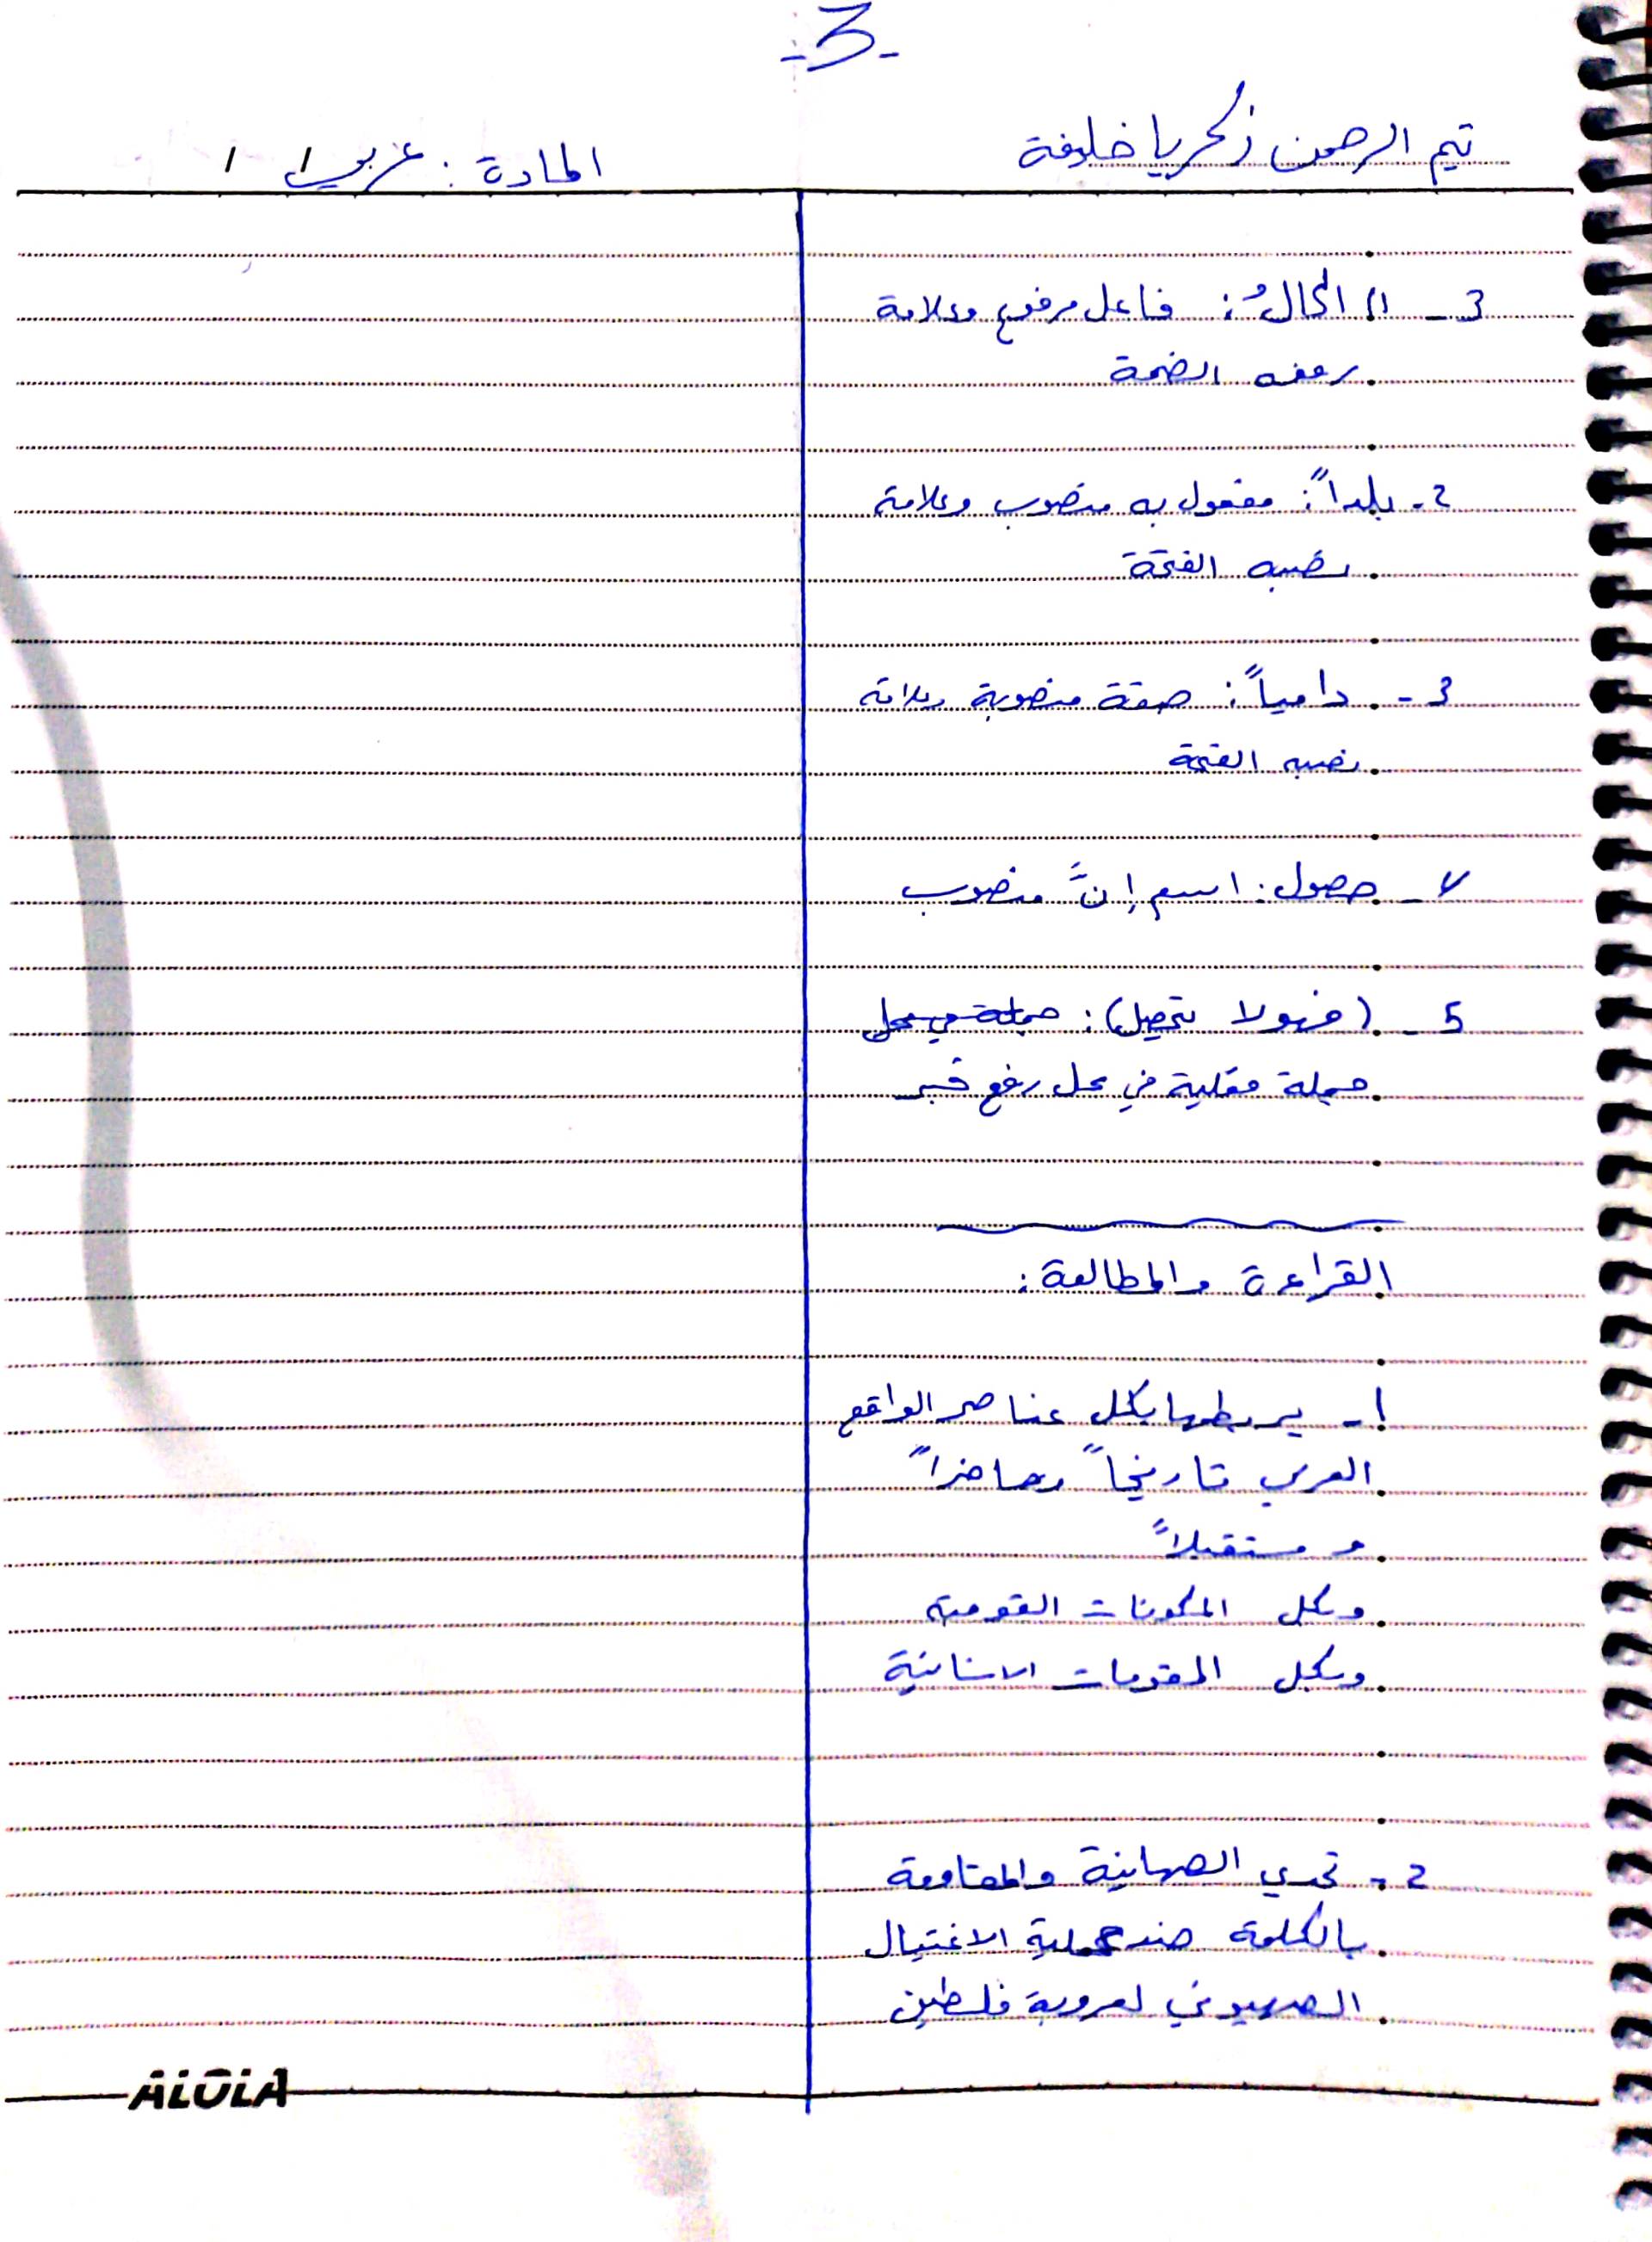 -3-
تيم الرحمن زكريا خليفة
المادة: عربي / /
3 - 1) الحالُ: فاعل مرفوع وعلامة
رفعه الضمة
2- بلداً: مفعول به منصوب وعلامة
نصبه الفتحة
3 - دامياً: صفة منصوبة وعلامة
نصبه الفتحة
4 - حصول: اسم إنَّ منصوب
5 - (فهولا تحصيل): جملة في محل
جملة فعلية في محل رفع خبر
القراءة والمطالعة:
1- يربطها بكل عناصر الواقع
العربي تاريخاً وحاضراً
و مستقبلاً
وبكل المكونات القومية
وبكل المقومات الانسانية
2- تحدي الصهاينة والمقاومة
بالكلمة ضد عملية الاغتيال
الصهيوني لعروبة فلسطين
ALOLA